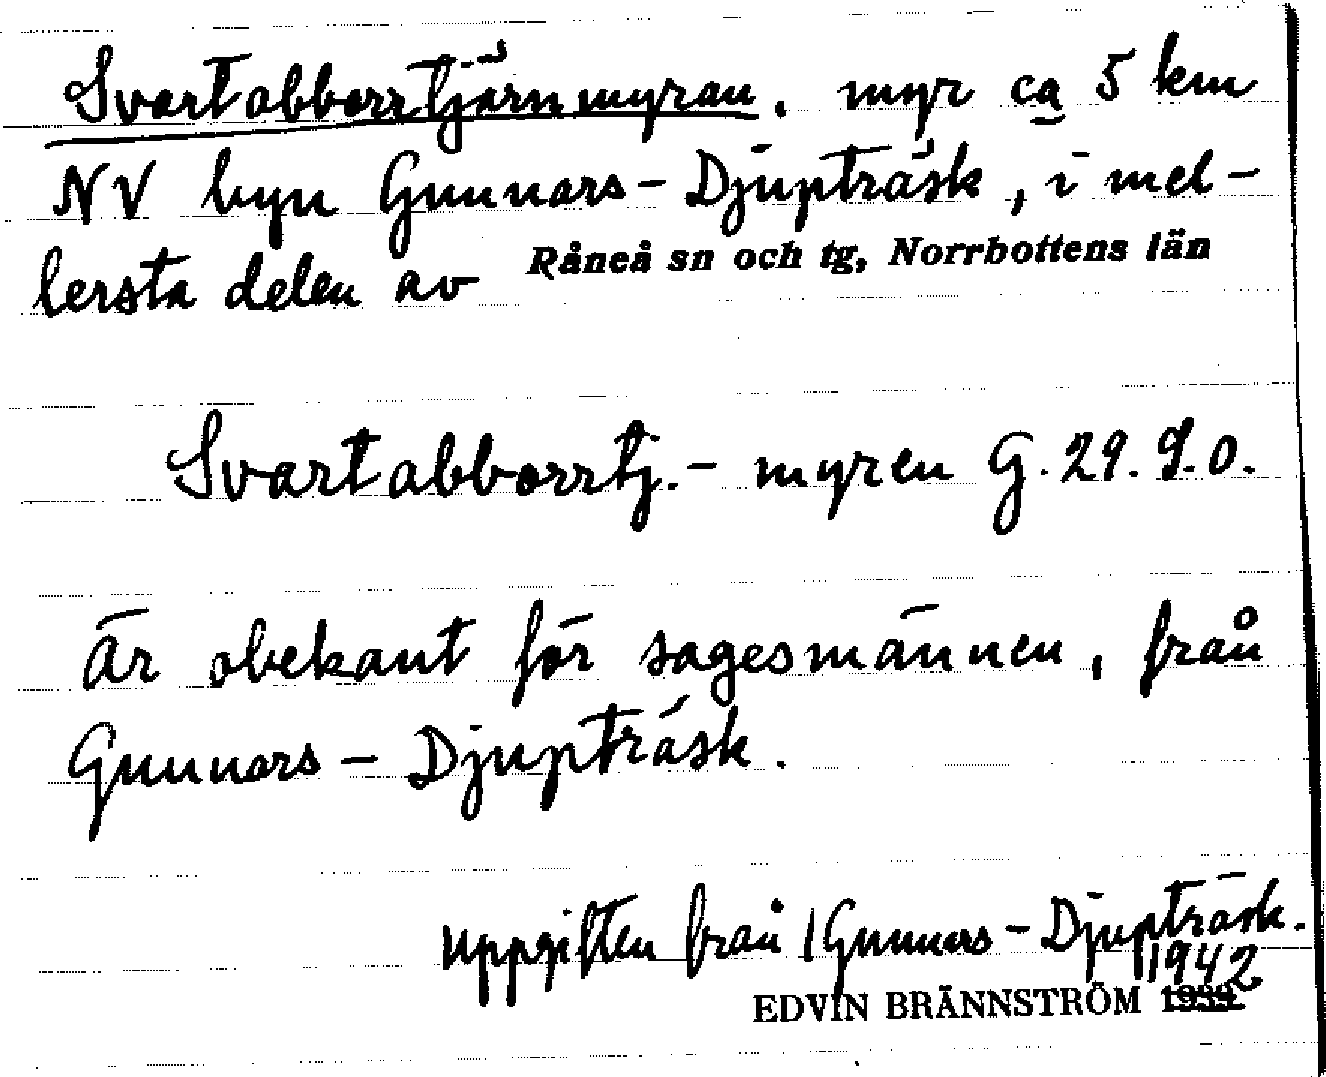 Svartabborrtjärnmyran. myr ca 5 km
NV byn Gunnars-Djupträsk, i mel-
lersta delen av Råneå sn och tg, Norrbottens län
Svartabborrtj.- myren G. 29. 9.0.
Är obekant för sagesmännen, från
Gunnars-Djupträsk.
Uppgiften från / Gunnars-Djupträsk.
1942
EDVIN BRÄNNSTRÖM